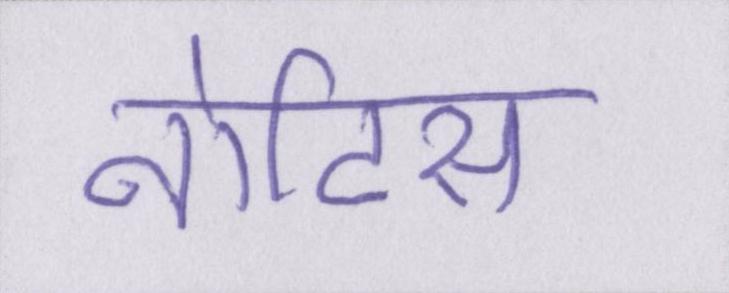 नोटिस